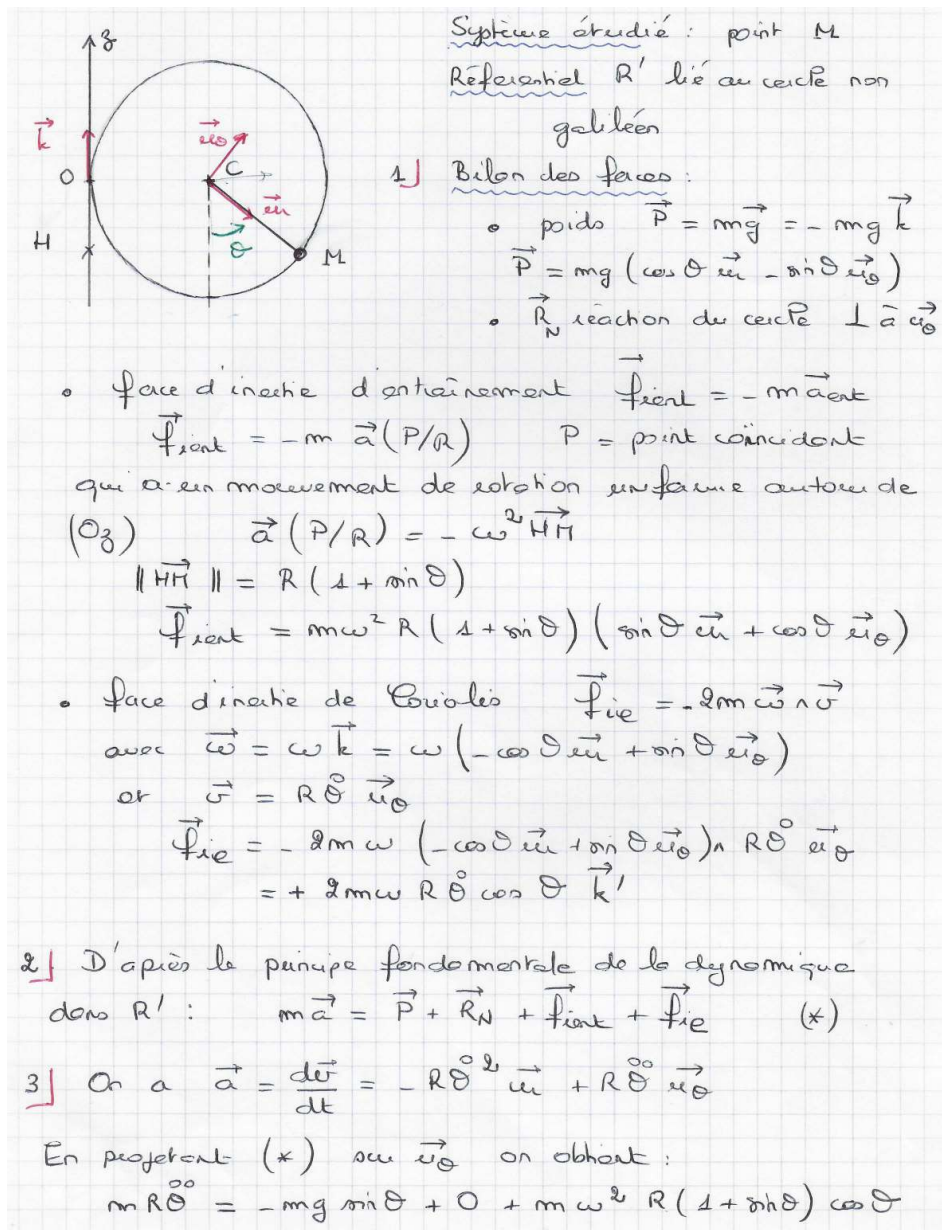 z
k⃗
O
H
u⃗θ
C
u⃗r
θ
M
Système étudié : point M
Référentiel R' lié au cercle non
galiléen
1] Bilan des forces :
• poids P⃗ = mg⃗ = - mg k⃗
P⃗ = mg (cos θ u⃗r - sin θ u⃗θ)
• R⃗N réaction du cercle ⊥ à u⃗θ
• force d'inertie d'entraînement f⃗ient = - m a⃗ent
f⃗ient = - m a⃗(P/R) P = point coïncidant
qui a un mouvement de rotation uniforme autour de
(Oz) a⃗(P/R) = - ω² HM⃗
‖ HM⃗ ‖ = R (1 + sin θ)
f⃗ient = mω² R (1 + sin θ) (sin θ u⃗r + cos θ u⃗θ)
• force d'inertie de Coriolis f⃗ic = - 2m ω⃗ ∧ v⃗
avec ω⃗ = ω k⃗ = ω (- cos θ u⃗r + sin θ u⃗θ)
et v⃗ = R θ̇ u⃗θ
f⃗ic = - 2m ω (- cos θ u⃗r + sin θ u⃗θ) ∧ R θ̇ u⃗θ
= + 2mω R θ̇ cos θ k⃗'
2] D'après le principe fondamentale de la dynamique
dans R' : m a⃗ = P⃗ + R⃗N + f⃗ient + f⃗ic (*)
3] On a a⃗ = dv⃗/dt = - R θ̇² u⃗r + R θ̈ u⃗θ
En projetant (*) sur u⃗θ on obtient :
m R θ̈ = - mg sin θ + 0 + m ω² R (1 + sin θ) cos θ